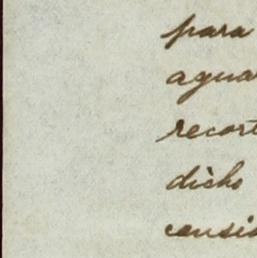 para
agua
recort
dicho
consid